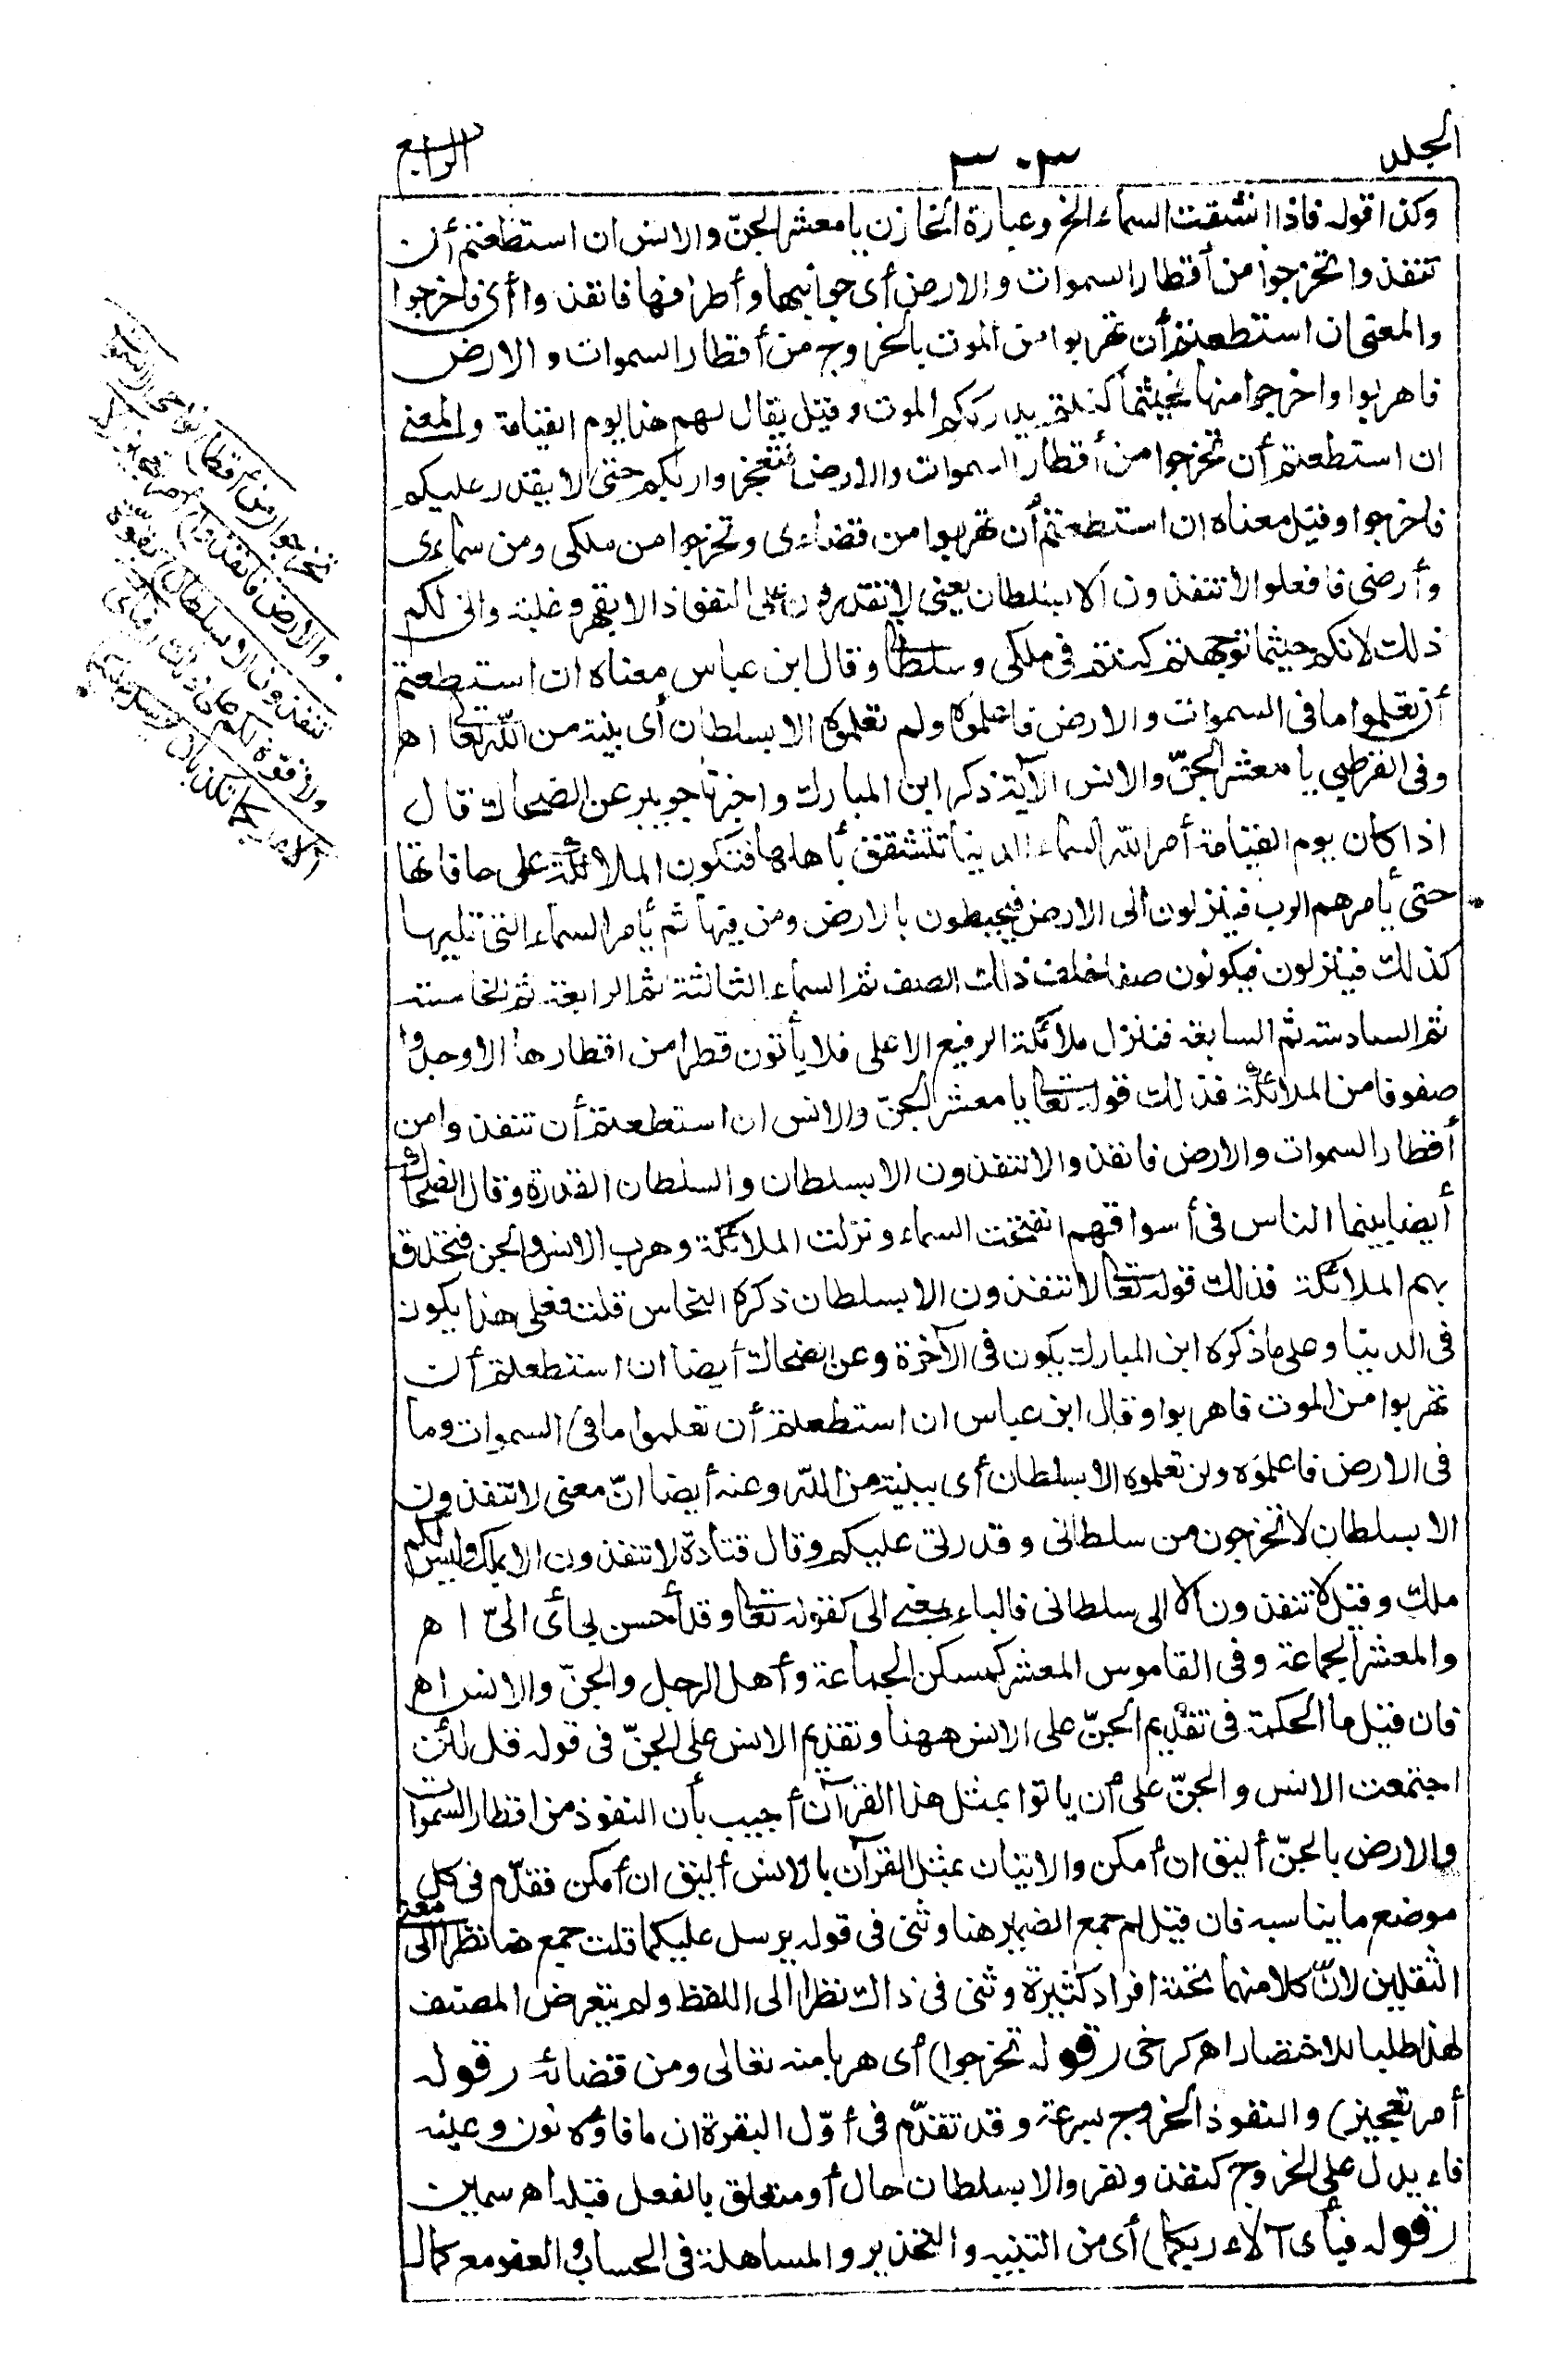 الجلد
٣٠٣
الرابع
وكذا قوله فاذا انشقت السماء الخ وعبارة الخازن يا معشر الجنّ والانس ان استطعتم أن
تنفذوا تخرجوا من أقطار السموات والارض أى جوانبها وأطرافها فانفذوا أى فاخرجوا
والمعنى ان استطعتم أن تهربوا من الموت بالخروج من أقطار السموات والارض
فاهربوا واخرجوا منها فحيثما كنتم يدرككم الموت وقيل يقال لهم هذا يوم القيامة والمعنى
ان استطعتم أن تخرجوا من أقطار السموات والارض فتعجزوا ربكم حتى لا يقدر عليكم
فاخرجوا وقيل معناه ان استطعتم أن تهربوا من قضاءى وتخرجوا من ملكى ومن سماءى
وأرضى فافعلوا لا تنفذون الا بسلطان يعنى لا تقدرون على النفوذ الا بقهر وغلبة وانى لكم
ذلك لانكم حيثما توجهتم كنتم فى ملكى وسلطانى وقال ابن عباس معناه ان استطعتم
أن تعلموا ما فى السموات والارض فاعلموه ولم تعلموه الا بسلطان أى بينة من الله تعالى اه
وفى القرطبي يا معشر الجنّ والانس الآية ذكر ابن المبارك واخبرنا جويبر عن الضحاك قال
اذا كان يوم القيامة أمر الله السماء الدنيا تتشقق بأهلها فتكون الملائكة على حافاتها
حتى يأمرهم الرب فينزلون الى الارض فيحيطون بالارض ومن فيها ثم يأمر السماء التى تليها
كذلك فينزلون فيكونون صفا خلف ذلك الصف ثم السماء الثالثة ثم الرابعة ثم الخامسة
ثم السادسة ثم السابعة فتنزل ملائكة الرفيع الاعلى فلا يأتون قطرا من اقطارها الا وجدوا
صفوفا من الملائكة فذلك قوله تعالى يا معشر الجنّ والانس ان استطعتم أن تنفذوا من
أقطار السموات والارض فانفذوا لا تنفذون الا بسلطان والسلطان القدرة وقال الضحاك
أيضا بينما الناس فى أسواقهم انفتحت السماء ونزلت الملائكة وهرب الانس والجن فتحدق
بهم الملائكة فذلك قوله تعالى لا تنفذون الا بسلطان ذكره النحاس قلت فعلى هذا يكون
فى الدنيا وعلى ما ذكره ابن المبارك يكون فى الآخرة وعن الضحاك أيضا ان استطعتم أن
تهربوا من الموت فاهربوا وقال ابن عباس ان استطعتم أن تعلموا ما فى السموات وما
فى الارض فاعلموه ولن تعلموه الا بسلطان أى ببينة من الله وعنه أيضا انّ معنى لا تنفذون
الا بسلطان لا تخرجون من سلطانى وقدرتى عليكم وقال قتادة لا تنفذون الا بملك وليس لكم
ملك وقيل لا تنفذون الا الى سلطانى فالباء بمعنى الى كقوله تعالى وقد أحسن بى أى الىّ اه
والمعشر الجماعة وفى القاموس المعشر كمسكن الجماعة وأهل الرجل والجنّ والانس اه
فان قيل ما الحكمة فى تقديم الجنّ على الانس ههنا وتقديم الانس على الجنّ فى قوله قل لئن
اجتمعت الانس والجنّ على أن ياتوا بمثل هذا القرآن أجيب بأن النفوذ من اقطار السموات
والارض بالجنّ أليق ان أمكن والاتيان بمثل القرآن بالانس أليق ان أمكن فقدّم فى كل
موضع ما يناسبه فان قيل لم جمع الضمير هنا وثنى فى قوله يرسل عليكما قلت جمع هنا نظرا الى معنى
الثقلين لانّ كلا منهما تحته افراد كثيرة وثنى فى ذاك نظرا الى اللفظ ولم يتعرض المصنف
لهذا طلبا للاختصار اه كرخى (قوله تخرجوا) أى هربا منه تعالى ومن قضائه (قوله
أمر تعجيز) والنفوذ الخروج بسرعة وقد تقدّم فى أوّل البقرة ان ما فاؤه نون وعينه
فاء يدل على الخروج كنفذ ونفر والا بسلطان حال أو متعلق بالفعل قبله اه سمين
(قوله فبأى آلاء ربكما) أى من التنبيه والتحذير والمساهلة فى الحساب والعفو مع كمال
تخرجوا من أقطار نواحى السموات
والارض فانفذوا أمر تعجيز
تنفذون الا بسلطان بقوّة
ولا قوّة لكم على ذلك فبأى
آلاء ربكما تكذبان يرسل عليكما